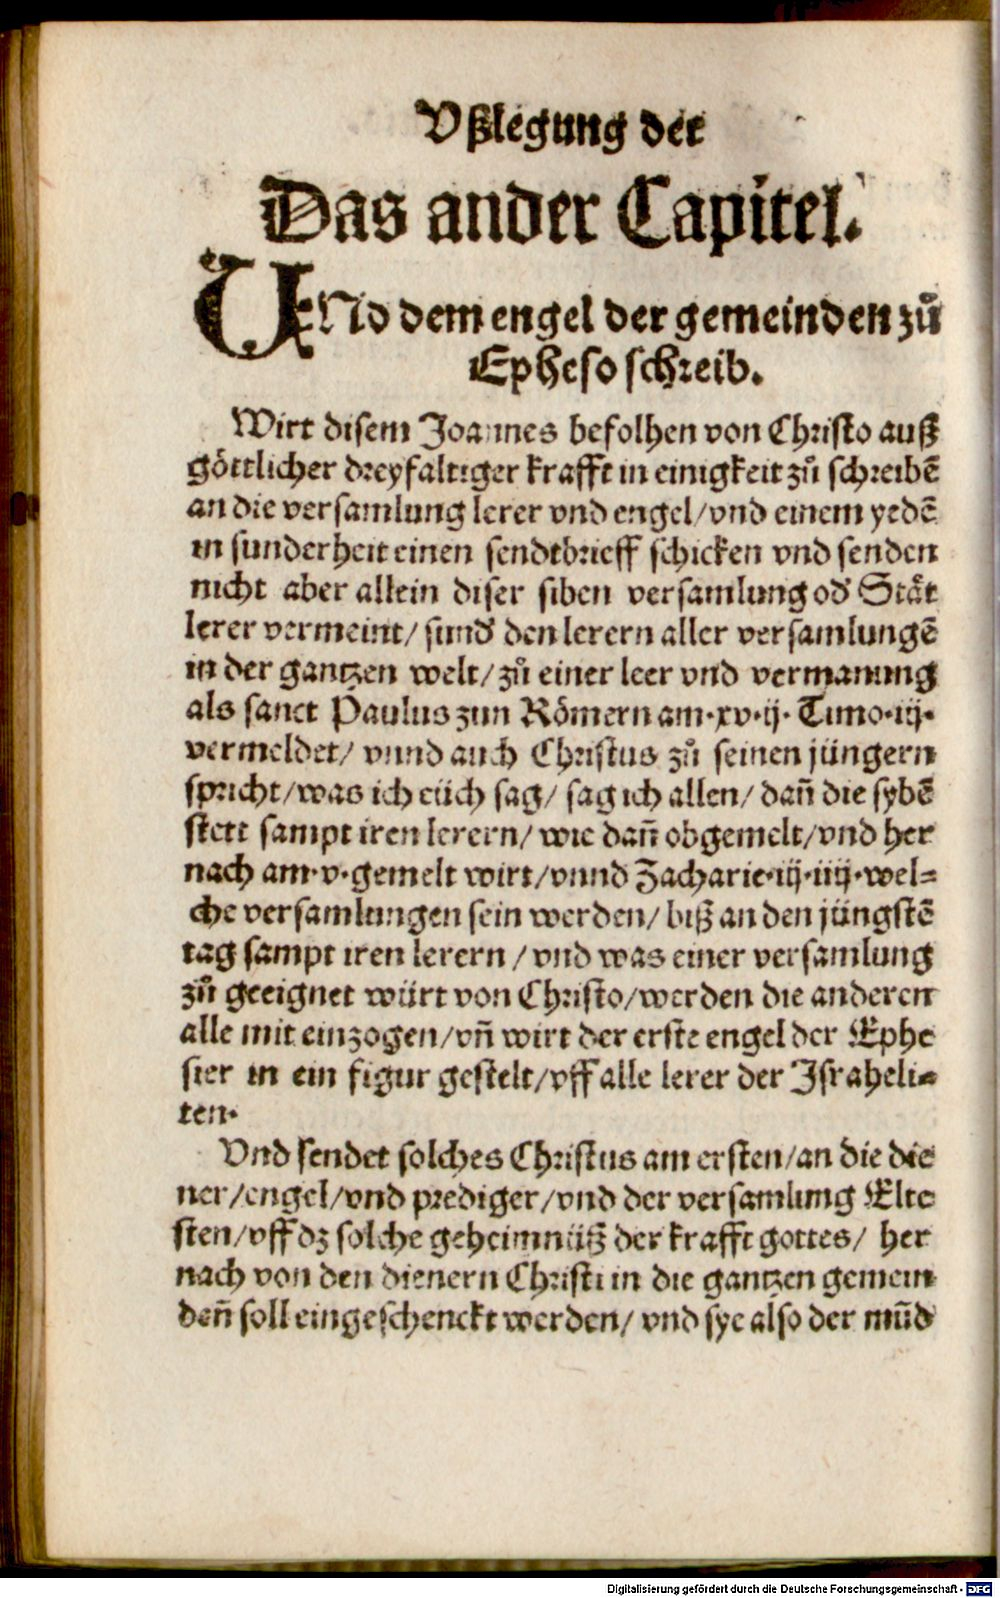 Vßlegung der
Das ander Capitel.
UNd dem engel der gemeinden zů
Epheso schreib.
Wirt disem Joannes befolhen von Christo auß
göttlicher dreyfaltiger krafft in einigkeit zů schreibē
an die versamlung lerer vnd engel/vnd einem yedē
in sunderheit einen sendtbrieff schicken vnd senden
nicht aber allein diser siben versamlung od' Stät
lerer vermeint/ sund' den lerern aller versamlungē
in der gantzen welt/ zů einer leer vnd vermanung
als sanct Paulus zun Römern am.xv.ij. Timo.iij.
vermeldet/ vnnd auch Christus zů seinen jüngern
spricht/was ich eüch sag/ sag ich allen/ dañ die sybē
stett sampt iren lerern/ wie dañ obgemelt/vnd her
nach am.v.gemelt wirt/vnnd Zacharie.iij.iiij.wel=
che versamlungen sein werden/ biß an den jüngstē
tag sampt iren lerern / vnd was einer versamlung
zů geeignet würt von Christo/werden die anderen
alle mit einzogen/vñ wirt der erste engel der Ephe
sier in ein figur gestelt/vff alle lerer der Israheli=
ten.
Vnd sendet solches Christus am ersten/an die die
ner/engel/vnd prediger/vnd der versamlung Elte
sten/vff dz solche geheimnüß der krafft gottes/ her
nach von den dienern Christi in die gantzen gemein
deñ soll eingeschenckt werden/ vnd sye also der mūd
Digitalisierung gefördert durch die Deutsche Forschungsgemeinschaft - DFG